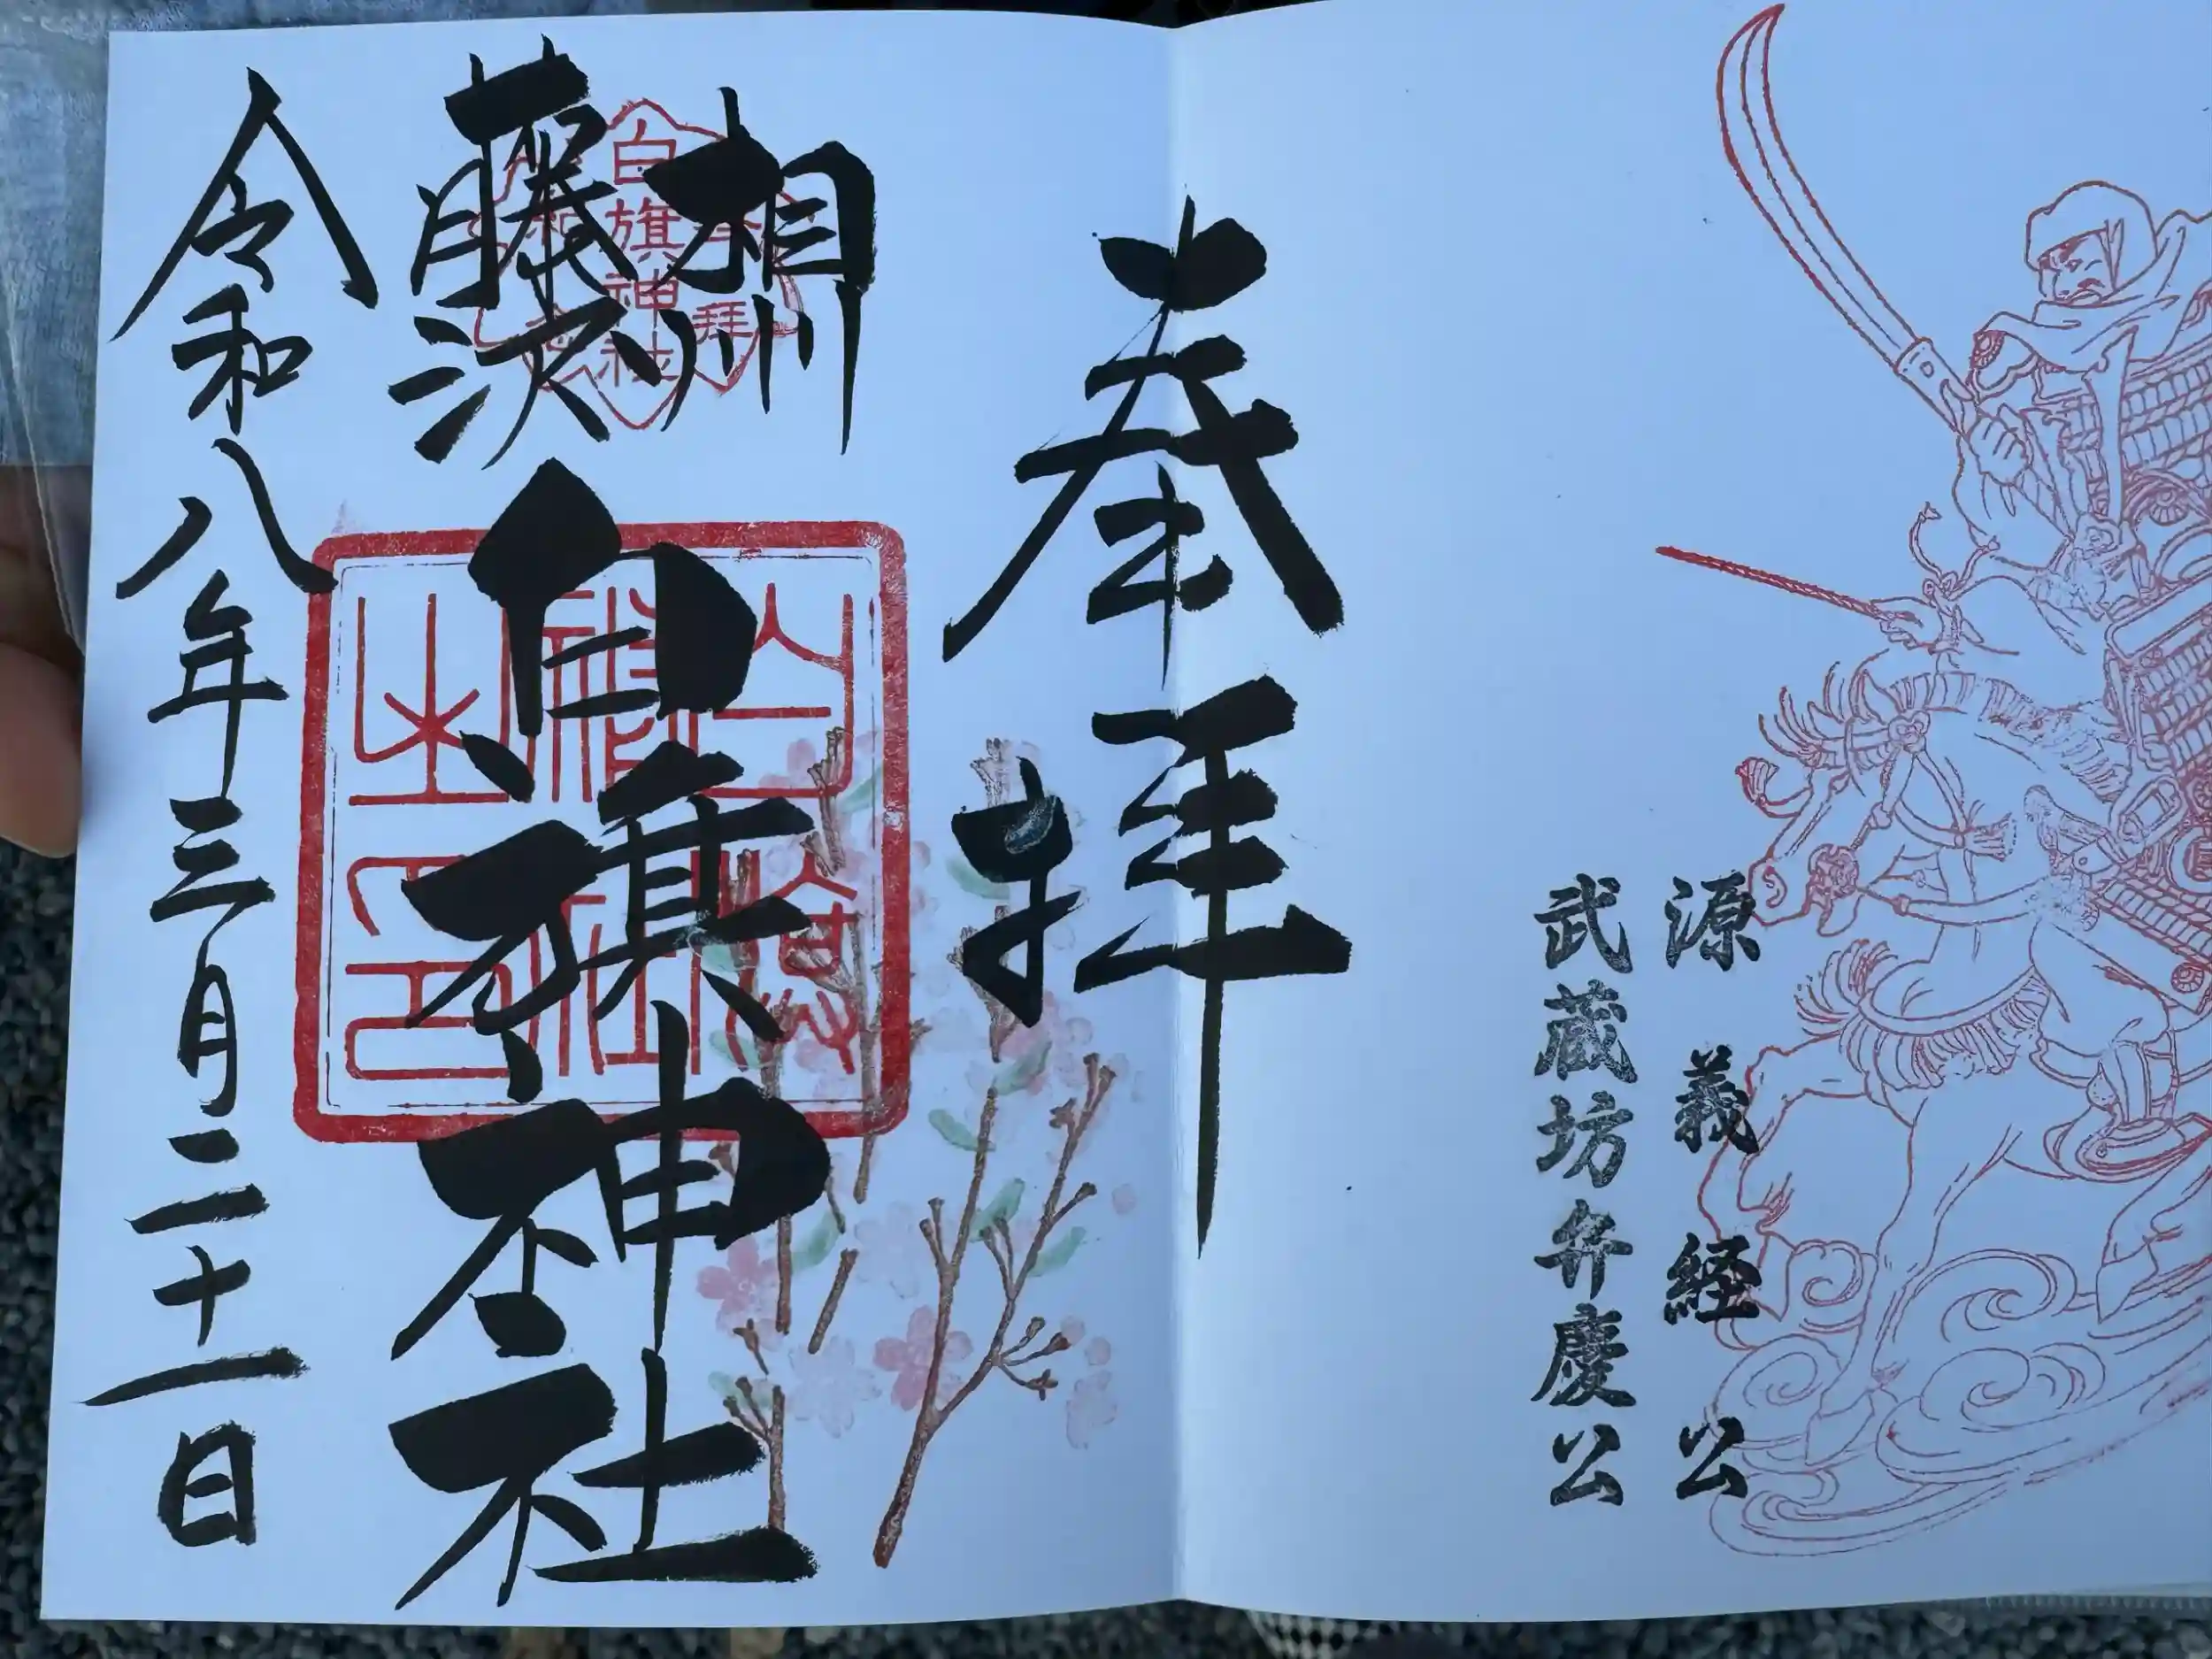 源義経公
武蔵坊弁慶公
奉拝
相州
藤沢
白旗神社
白旗神社
拝
令和八年三月二十一日